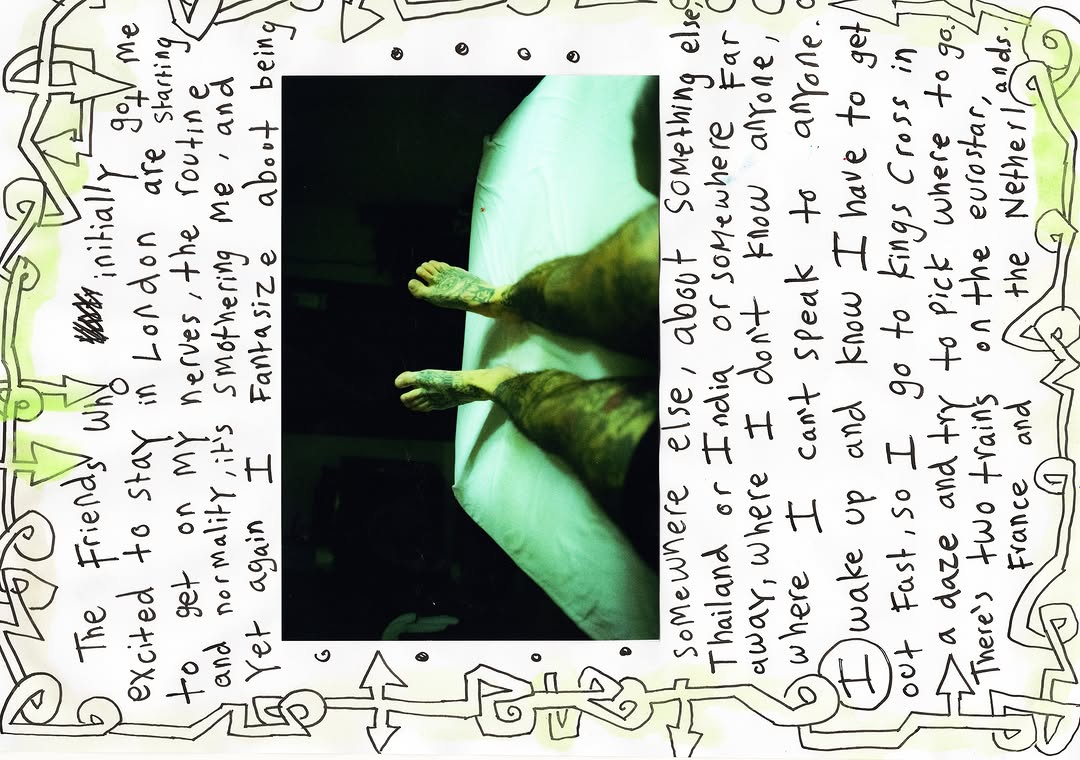 The Friends who initially got me
excited to stay in London are starting
to get on my nerves, the routine
and normality, it's smothering me, and
Yet again I Fantasize about being
somewhere else, about something else,
Thailand or India or somewhere Far
away, where I don't know anyone,
where I can't speak to anyone.
I wake up and know I have to get
out Fast, so I go to Kings Cross in
a daze and try to pick where to go.
There's two trains on the eurostar,
France and the Netherlands.